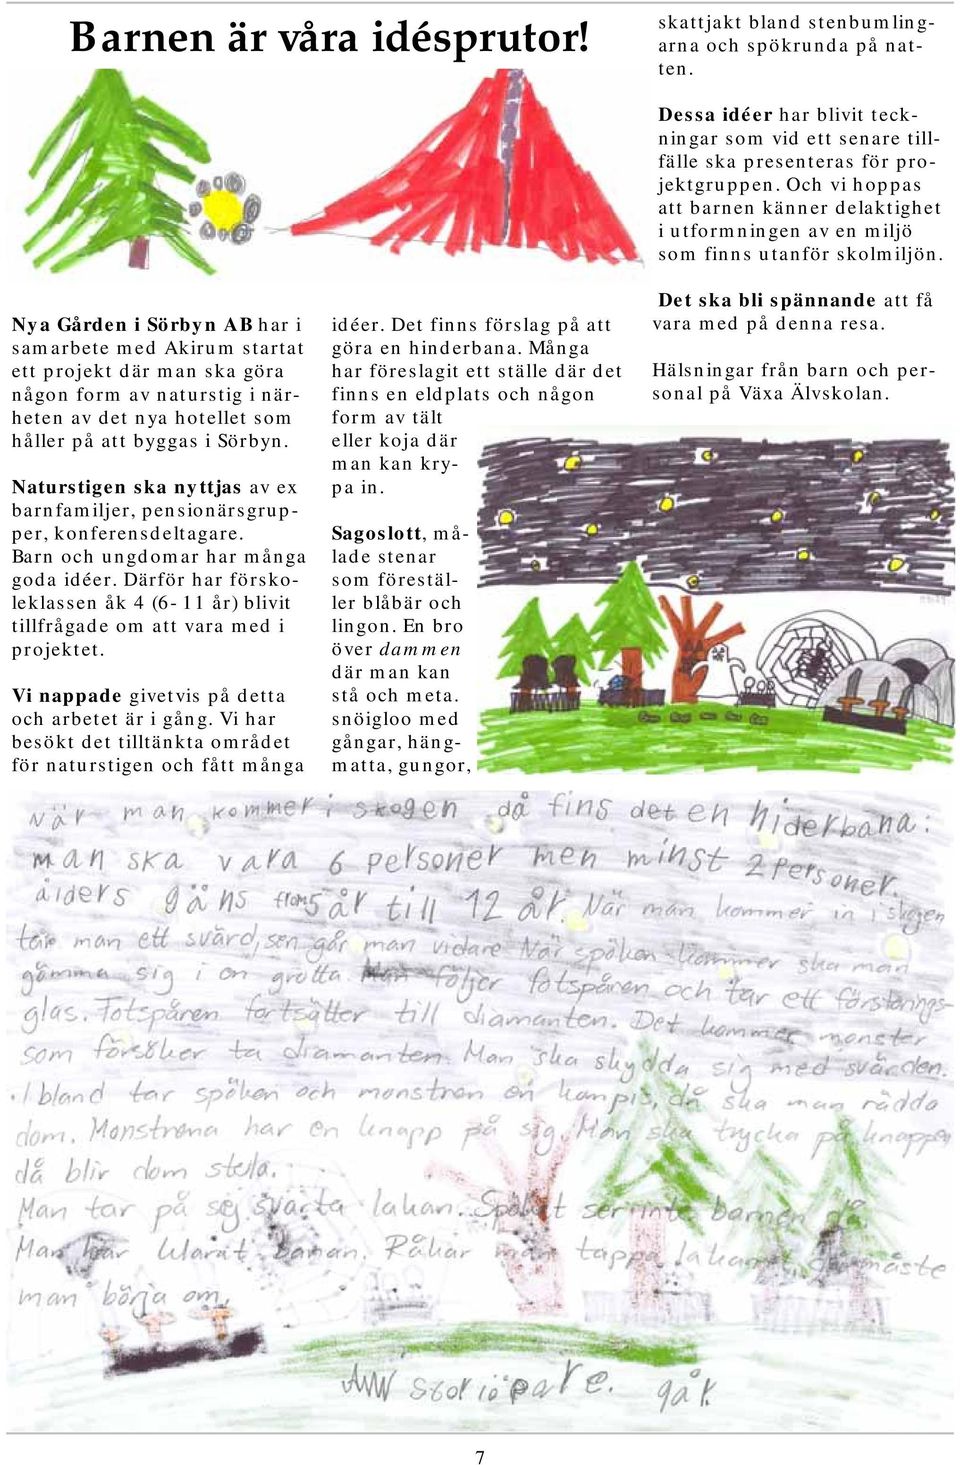 Barnen är våra idésprutor!
Nya Gården i Sörbyn AB har i
samarbete med Akirum startat
ett projekt där man ska göra
någon form av naturstig i när-
heten av det nya hotellet som
håller på att byggas i Sörbyn.
Naturstigen ska nyttjas av ex
barnfamiljer, pensionärsgrup-
per, konferensdeltagare.
Barn och ungdomar har många
goda idéer. Därför har försko-
leklassen åk 4 (6-11 år) blivit
tillfrågade om att vara med i
projektet.
Vi nappade givetvis på detta
och arbetet är i gång. Vi har
besökt det tilltänkta området
för naturstigen och fått många
idéer. Det finns förslag på att
göra en hinderbana. Många
har föreslagit ett ställe där det
finns en eldplats och någon
form av tält
eller koja där
man kan kry-
pa in.
Sagoslott, må-
lade stenar
som förestäl-
ler blåbär och
lingon. En bro
över dammen
där man kan
stå och meta.
snöigloo med
gångar, häng-
matta, gungor,
skattjakt bland stenbumling-
arna och spökrunda på nat-
ten.
Dessa idéer har blivit teck-
ningar som vid ett senare till-
fälle ska presenteras för pro-
jektgruppen. Och vi hoppas
att barnen känner delaktighet
i utformningen av en miljö
som finns utanför skolmiljön.
Det ska bli spännande att få
vara med på denna resa.
Hälsningar från barn och per-
sonal på Växa Älvskolan.
När man kommer i skogen då fins det en hiderbana:
man ska vara 6 personer men minst 2 personer.
ålders gäns från 5 år till 12 år. När man kommer in i skogen
tar man ett svärd, sen går man vidare När spöken kommer ska man
gömma sig i en grotta Man följer fotspåren och tar ett förstorings-
glas. Fotspåren fortsätter till diamanten. Det kommer monster
som försöker ta diamanten. Man ska skydda sig med svärden.
Ibland tar spöken och monstren en kompis, då ska man rädda
dom. Monstrena har en knapp på sig. Man ska trycka på knappen
då blir dom stela.
Man tar på sej svarta lakan. Spöket ser inte barnen då
Man har klarat banan. Råkar man tappa lakanet så måste
man börja om.
7